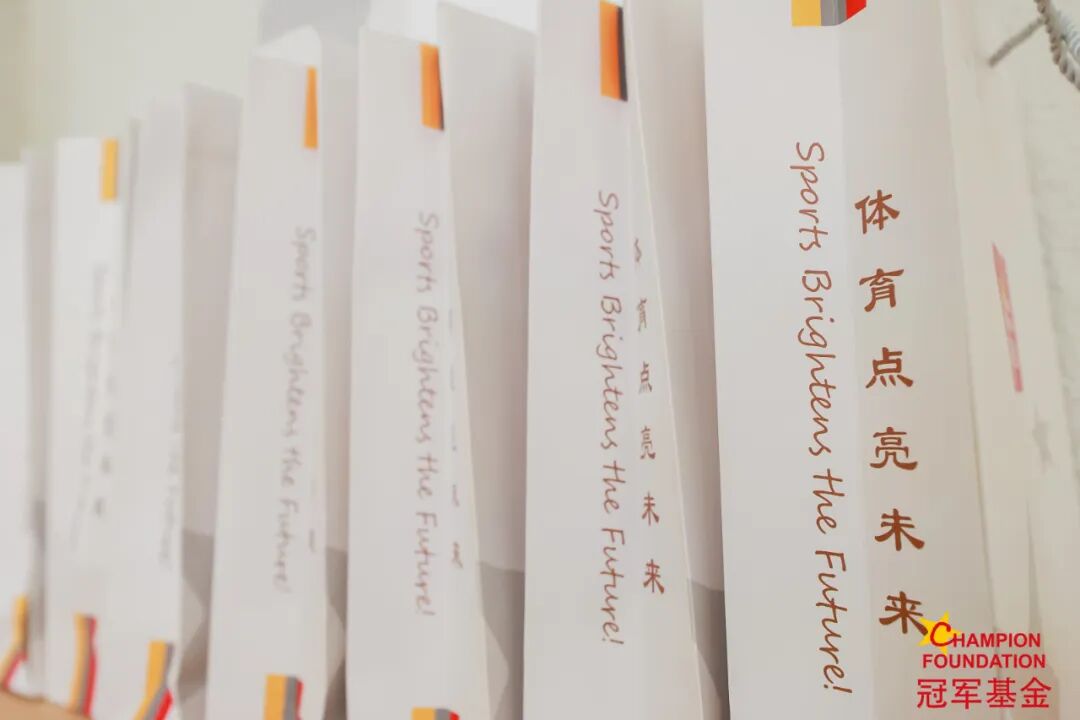 Sports Brightens the Future!
Sports Brightens the Future!
点亮未来
Sports Brightens the Future!
Sports Brightens the Future!
体育点亮未来
CHAMPION
FOUNDATION
冠军基金